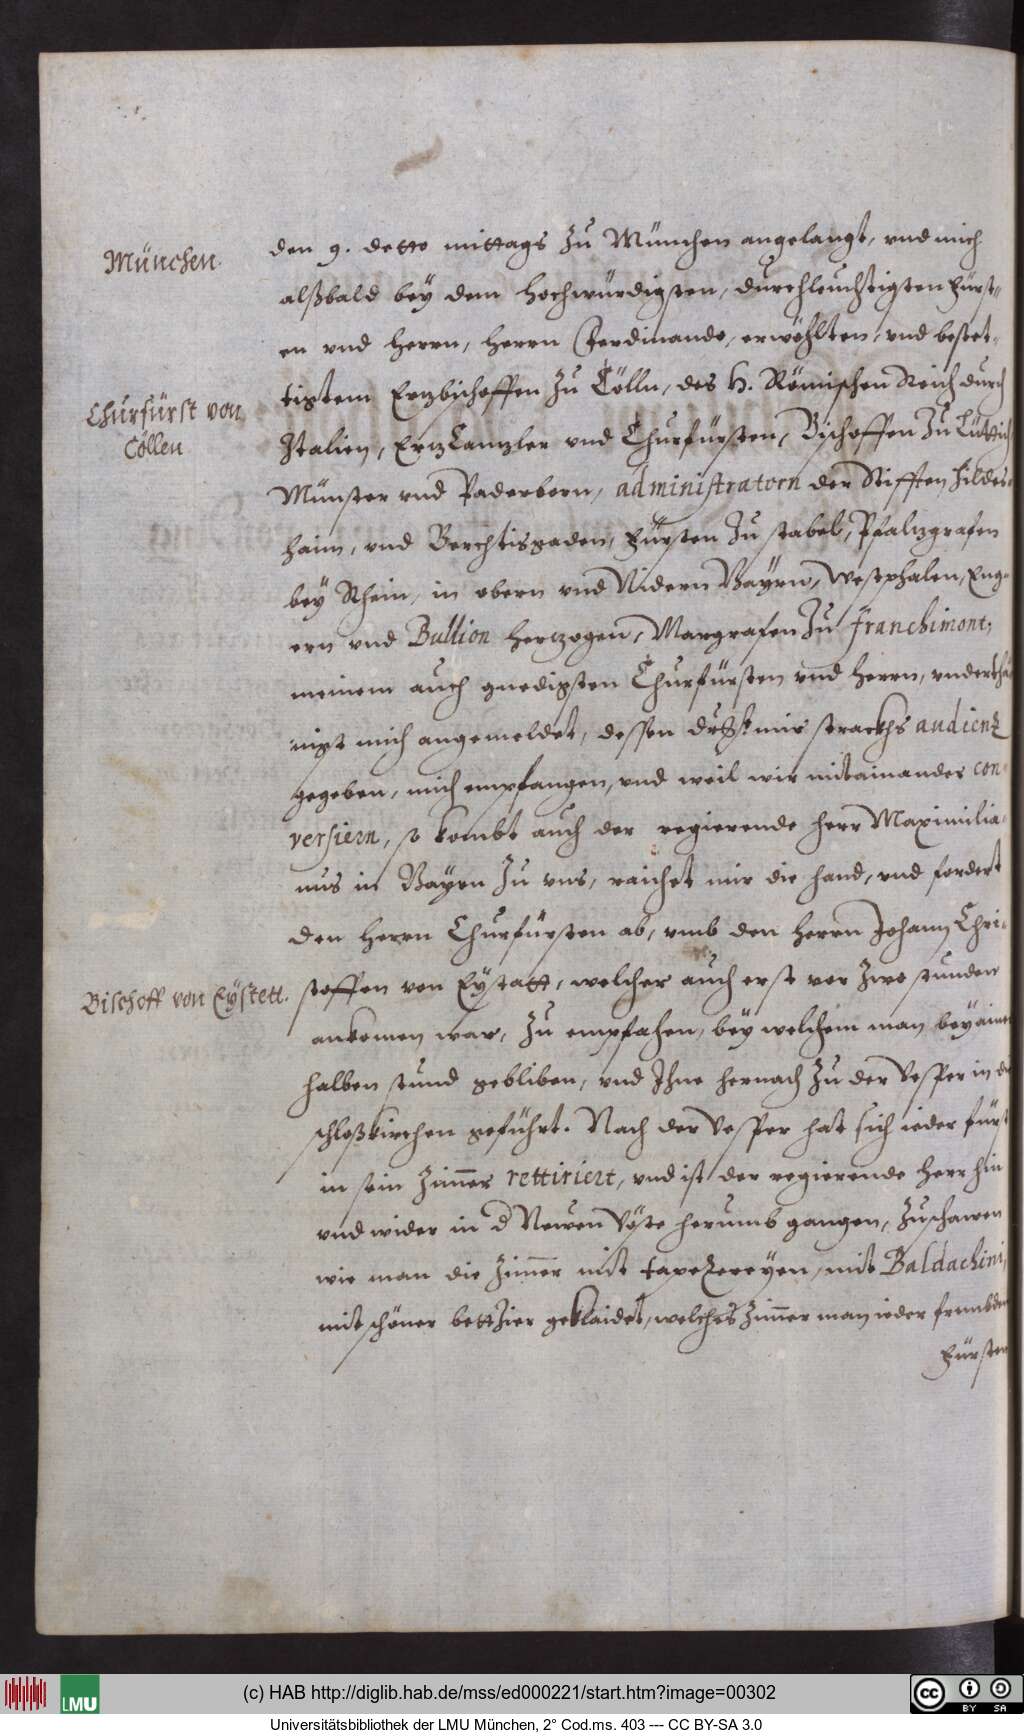 München.
den 9. detto mittags zu München angelangt, vnd mich
alßbald bey dem Hochwürdigsten, durchleuchtigsten Fürst-
en vnd Herrn, Herrn Ferdinando, erwöhlten, vnd bestet-
Churfürst von
Cöllen
tigtem Erzbischoffen zu Cölln, des H. Römischen Reich durch
Italien, ErzCanzler vnd Churfürsten, Bischoffen zu Lüttich
Münster vnd Paderborn, administratorn der Stifften Hildes-
haim, vnd Berchtisgaden, Fürsten zu stabel, Pfalzgrafen
bey Rhein, in obern vnd Nidern Bayrn, Westphalen, Eng-
ern vnd Bullion Hertzogen, Marggrafen zu Franchimont,
meinem auch gnedigsten Churfürsten vnd Herrn, vnderthä-
nigst mich angemeldet, dessen mir strackhs audienz
gegeben, mich empfangen, vnd weil wir mitainander con-
versiern, so kombt auch der regierende Herr Maximilia-
nus in Bayrn zu vns, raichet mir die hand, vnd fordert
den Herrn Churfürsten ab, vmb den Herrn Johann Chri-
Bischoff von Eystett.
stoffen von Eystatt, welcher auch erst vor zwo stunden
ankomen war, zu empfahen, bey welchem man bey ainer
halben stund gebliben, vnd Ihne hernach zu der Vesper in die
schloßkirchen geführt. Nach der Vesper hat sich ieder fürst
in sein Zimmer rettiriert, vnd ist der regierende Herr hin
vnd wider in d Newen Vöste herumb gangen, zuschawen
wie man die Zimmer mit tapezereyen, mit Baldachini,
mit schöner bettzier geklaidet, welches Zimmer man ieder frembden
Fürsten
(c) HAB http://diglib.hab.de/mss/ed000221/start.htm?image=00302
LMU
cc BY SA
Universitätsbibliothek der LMU München, 2° Cod.ms. 403 --- CC BY-SA 3.0